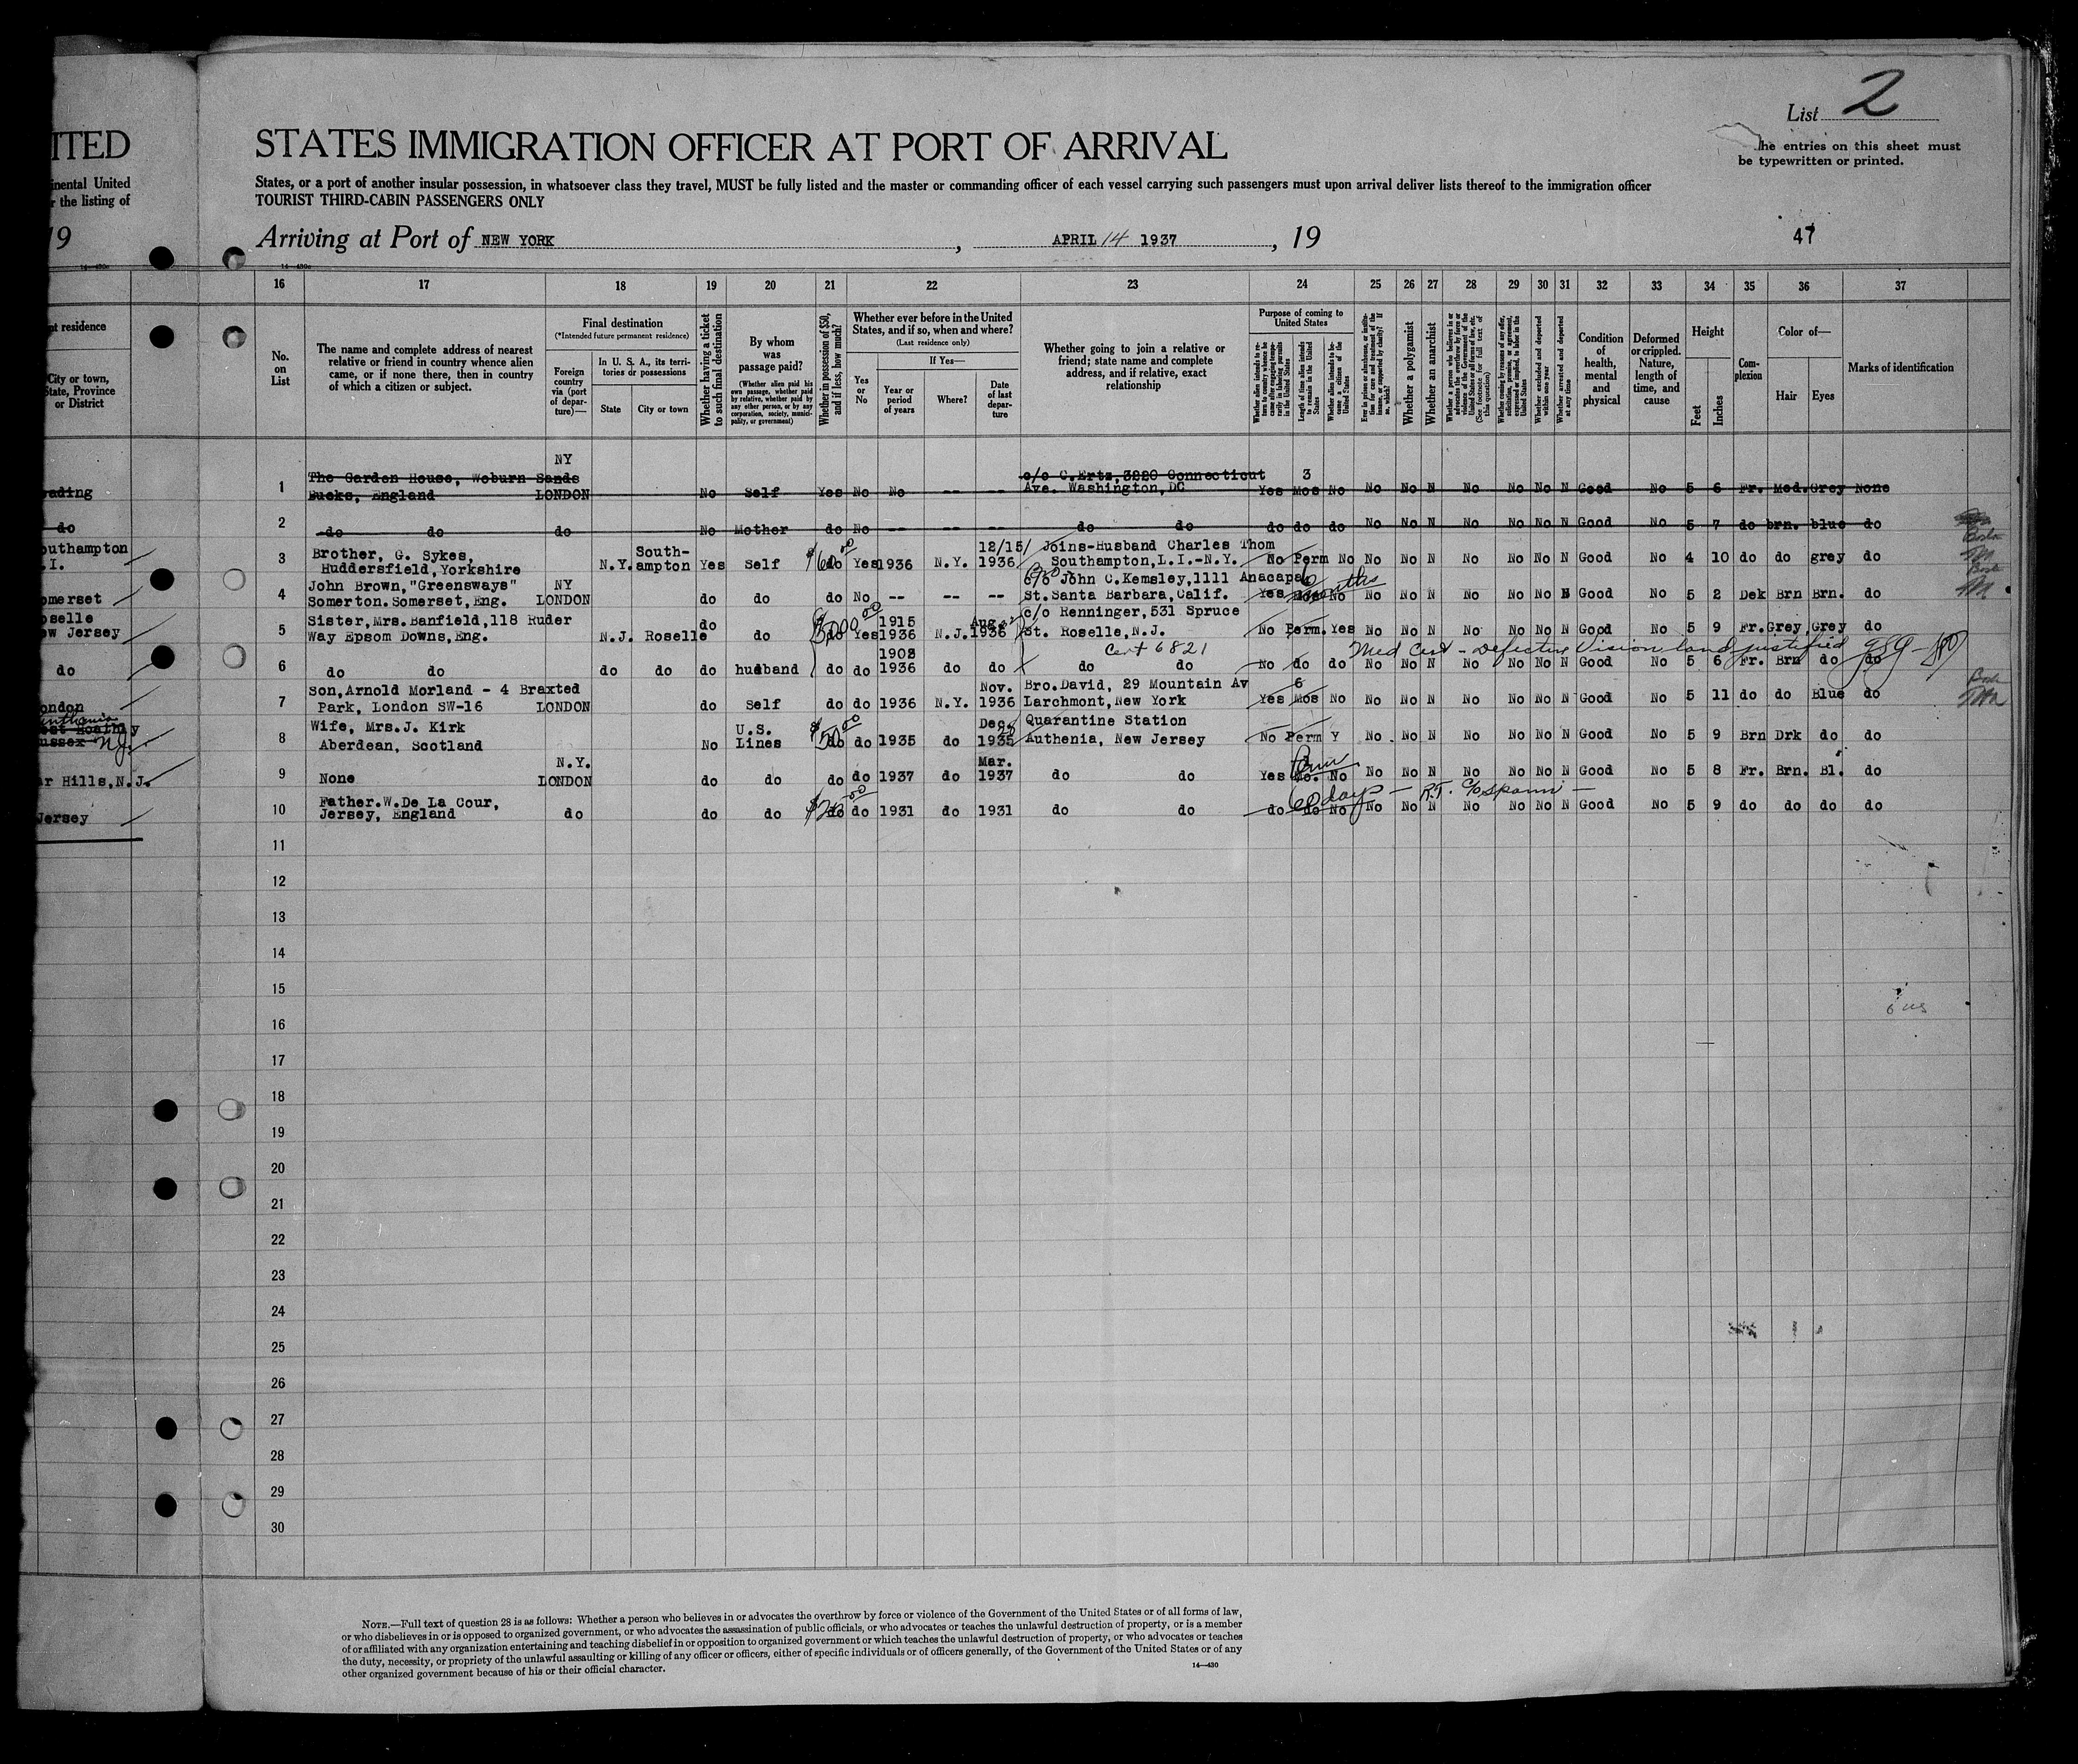 List 2
The entries on this sheet must
be typewritten or printed.
ITED
STATES IMMIGRATION OFFICER AT PORT OF ARRIVAL
inental United
r the listing of
States, or a port of another insular possession, in whatsoever class they travel, MUST be fully listed and the master or commanding officer of each vessel carrying such passengers must upon arrival deliver lists thereof to the immigration officer
TOURIST THIRD-CABIN PASSENGERS ONLY
19
Arriving at Port of NEW YORK, APRIL 14 1937, 19
47
16 17 18 19 20 21 22 23 24 25 26 27 28 29 30 31 32 33 34 35 36 37
nt residence
City or town,
State, Province
or District
No.
on
List
The name and complete address of nearest
relative or friend in country whence alien
came, or if none there, then in country
of which a citizen or subject.
Final destination
(*Intended future permanent residence)
Foreign
country
via (port
of depar-
ture)—
In U. S. A., its terri-
tories or possessions
State
City or town
Whether having a ticket
to such final destination
By whom
was
passage paid?
(Whether alien paid his
own passage, whether paid
by relative, whether paid by
any other person, or by any
corporation, society, munici-
pality, or government)
Whether in possession of $50,
and if less, how much?
Whether ever before in the United
States, and if so, when and where?
(Last residence only)
Yes
or
No
If Yes—
Year or
period
of years
Where?
Date
of last
depar-
ture
Whether going to join a relative or
friend; state name and complete
address, and if relative, exact
relationship
Purpose of coming to
United States
Length of time alien intends
to remain in the United
States
Whether alien intends to be-
come a citizen of the
United States
Whether a polygamist
Whether an anarchist
Whether excluded and deported
within one year
Whether arrested and deported
at any time
Condition
of
health,
mental
and
physical
Deformed
or crippled.
Nature,
length of
time, and
cause
Height
Feet
Inches
Com-
plexion
Color of—
Hair
Eyes
Marks of identification
NY
The Garden House, Woburn Sands c/o C.Ertz, 3220 Connecticut 3
ading 1 Bucks, England LONDON No Self Yes No No -- -- Ave. Washington,DC Yes Mos No No No N No No No N Good No 5 6 Fr. Med. Grey None
do 2 do do do No Mother do No -- -- -- do do do do do No No N No No No N Good No 5 7 do brn. blue do
outhampton Brother, G. Sykes, South- 12/15/ Joins-Husband Charles Thom
.I. 3 Huddersfield,Yorkshire N.Y. ampton Yes Self $60.00 Yes 1936 N.Y. 1936 Southampton,L.I.-N.Y. No Perm No No No N No No No N Good No 4 10 do do grey do
John Brown,"Greensways" NY c/o John C.Kemsley,1111 Anacapa 6 months
omerset 4 Somerton.Somerset,Eng. LONDON do do do No -- -- -- St.Santa Barbara,Calif. Yes Mos No No No N No No No N Good No 5 2 Dek Brn Brn. do
oselle Sister,Mrs.Banfield,118 Ruder do 1915 Aug. c/o Renninger,531 Spruce
ew Jersey 5 Way Epsom Downs,Eng. N.J. Roselle do do Yes 1936 N.J. 1936 St. Roselle,N.J. No Perm. Yes No No N No No No N Good No 5 9 Fr. Grey Grey do
1908 Cert 6821 Med Cert - Defective Vision land justified
do 6 do do do do do husband do do 1936 do do do do No do do No No N No No No N Good No 5 6 Fr. Brn do do
son,Arnold Morland - 4 Braxted Nov. Bro.David, 29 Mountain Av 6
ondon 7 Park, London SW-16 LONDON do Self do do 1936 N.Y. 1936 Larchmont,New York Yes Mos No No No N No No No N Good No 5 11 do do Blue do
Wife, Mrs.J. Kirk U.S. $50.00 Dec. Quarantine Station
ussex N.J. 8 Aberdean, Scotland No Lines do do 1935 do 1935 Authenia, New Jersey No Perm Y No No N No No No N Good No 5 9 Brn Drk do do
N.Y. Mar. Perm
ar Hills,N.J. 9 None LONDON do do do do 1937 do 1937 do do Yes do. No No No N No No No N Good No 5 8 Fr. Brn. Bl. do
Father.W.De La Cour, 60 days - R.T.
Jersey 10 Jersey, England do do do do do 1931 do 1931 do do do do No No No N No No No N Good No 5 9 do do do do
11
12
13
14
15
16
17
18
19
20
21
22
23
24
25
26
27
28
29
30
NOTE.—Full text of question 28 is as follows: Whether a person who believes in or advocates the overthrow by force or violence of the Government of the United States or of all forms of law,
or who disbelieves in or is opposed to organized government, or who advocates the assassination of public officials, or who advocates or teaches the unlawful destruction of property, or is a member
of or affiliated with any organization entertaining and teaching disbelief in or opposition to organized government or which teaches the unlawful destruction of property, or who advocates or teaches
the duty, necessity, or propriety of the unlawful assaulting or killing of any officer or officers, either of specific individuals or of officers generally, of the Government of the United States or of any
other organized government because of his or their official character.
14—430